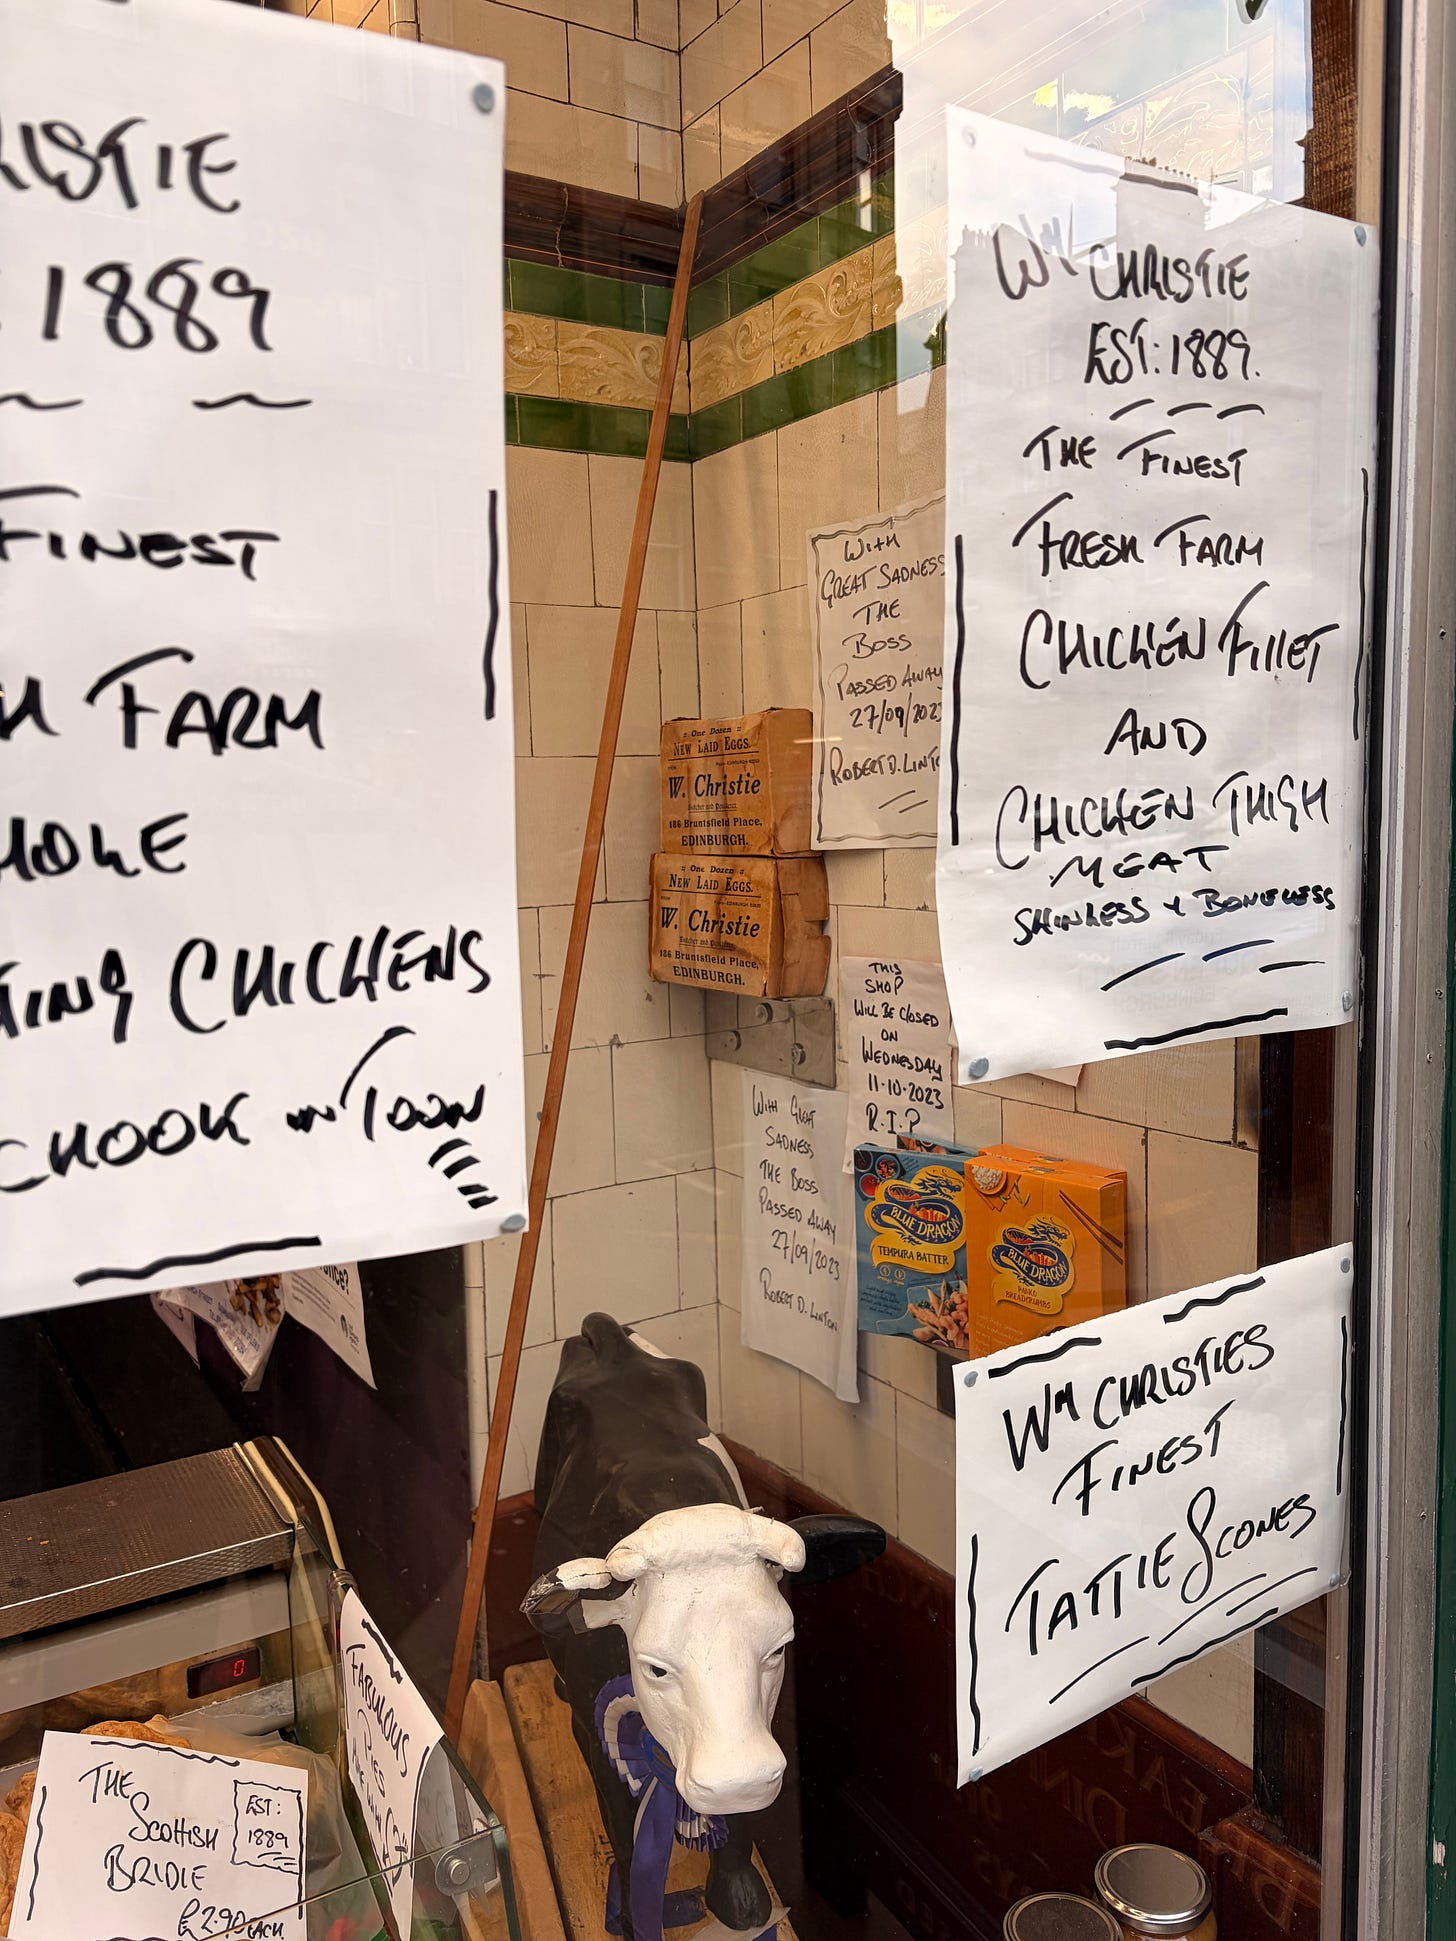 RISTIE
1889
FINEST
H FARM
HOLE
TING CHICKENS
CHOOK IN TOON
Wm CHRISTIE
EST: 1889.
THE FINEST
FRESH FARM
CHICKEN FILLET
AND
CHICKEN THIGH
MEAT
SKINLESS & BONELESS
WITH
GREAT SADNESS
THE
BOSS
PASSED AWAY
27/09/2023
ROBERT D. LINTO
One Dozen
NEW LAID EGGS.
W. Christie
Butcher and Poulterer
186 Bruntsfield Place,
EDINBURGH.
One Dozen
NEW LAID EGGS.
W. Christie
Butcher and Poulterer
186 Bruntsfield Place,
EDINBURGH.
THIS
SHOP
WILL BE CLOSED
ON
WEDNESDAY
11·10·2023
R.I.P
WITH GREAT
SADNESS
THE BOSS
PASSED AWAY
27/09/2023
ROBERT D. LINTON
BLUE DRAGON
TEMPURA BATTER
BLUE DRAGON
PANKO
BREADCRUMBS
Wm CHRISTIES
FINEST
TATTIE SCONES
0
FABULOUS
PIES
THE
SCOTTISH
BRIDIE
£2.90 EACH.
EST:
1889